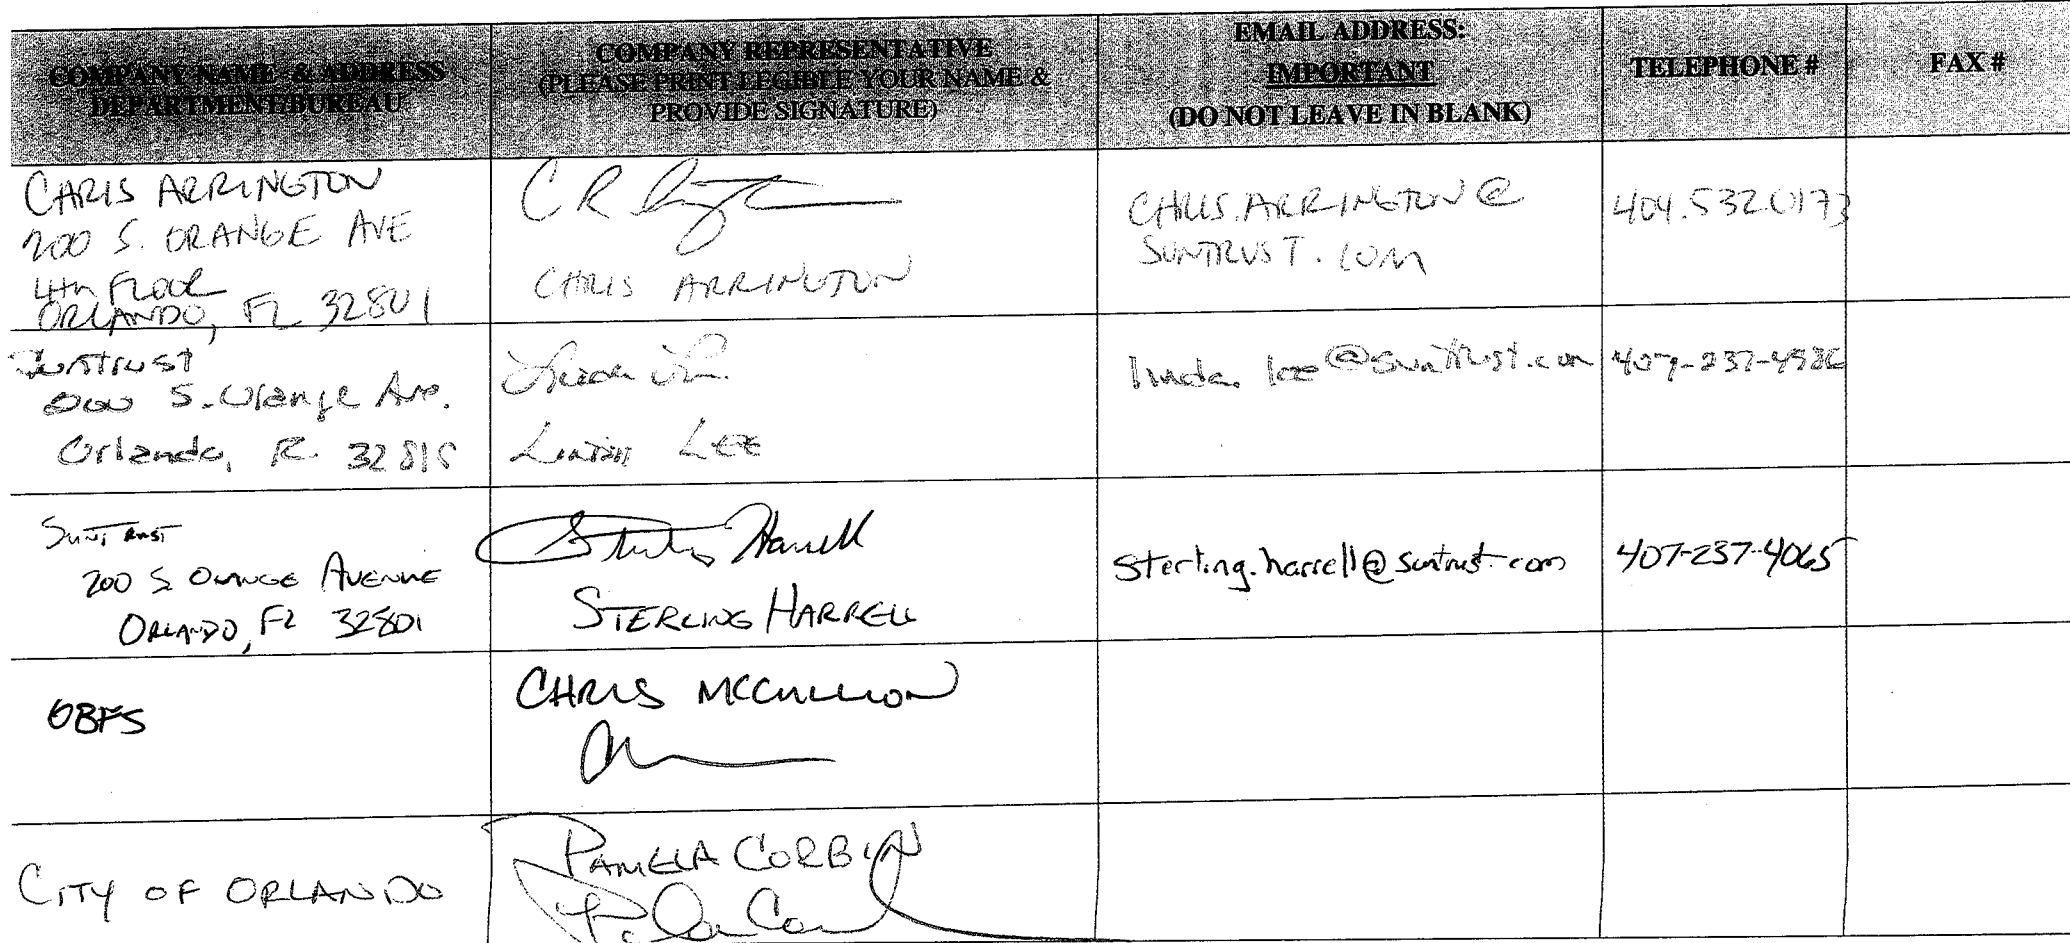 COMPANY NAME & ADDRESS
DEPARTMENT/BUREAU
COMPANY REPRESENTATIVE
(PLEASE PRINT LEGIBLE YOUR NAME &
PROVIDE SIGNATURE)
EMAIL ADDRESS:
IMPORTANT
(DO NOT LEAVE IN BLANK)
TELEPHONE #
FAX #
CHRIS ARRINGTON
200 S. ORANGE AVE
4th FLOOR
ORLANDO, FL 32801
CHRIS ARRINGTON
CHRIS.ARRINGTON@
SUNTRUST.COM
404.532.0173
Suntrust
200 S. Orange Ave.
Orlando, FL
Linda Lee
linda.lee@suntrust.com
SunTrust
200 S ORANGE AVENUE
ORLANDO, FL 32801
Sterling Harrell
STERLING HARRELL
sterling.harrell@suntrust.com
407-237-4065
OBFS
CHRIS MCCULLION
CITY OF ORLANDO
PAMELA CORBIN